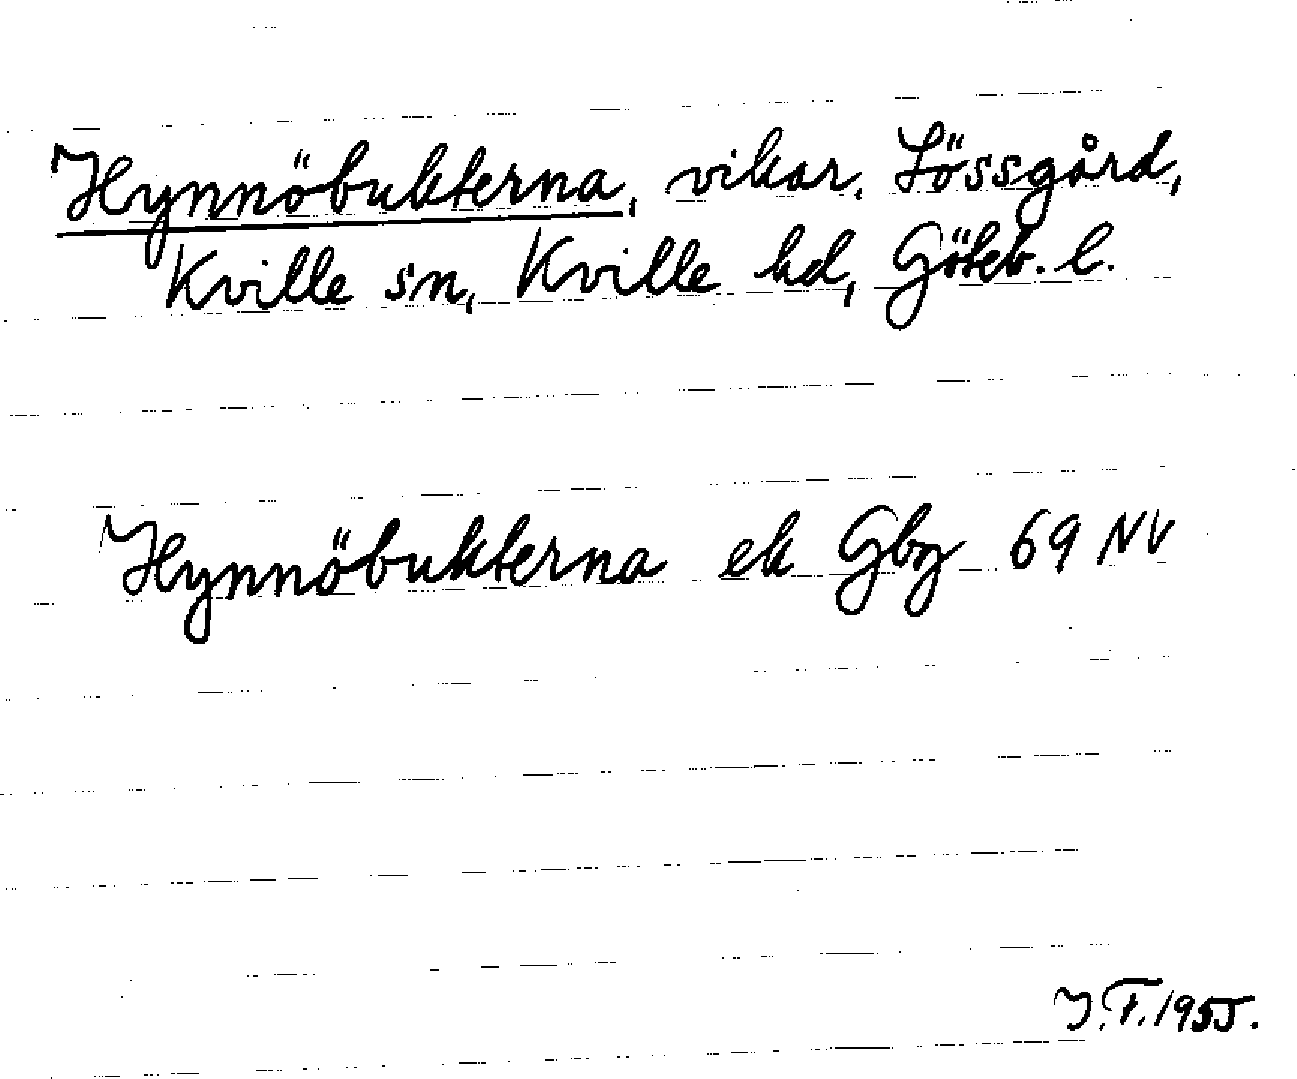 Hynnöbukterna, vikar, Lössgård,
Kville sn, Kville hd, Göteb. l.
Hynnöbukterna ek Gbg 69 NV
I.F. 1955.